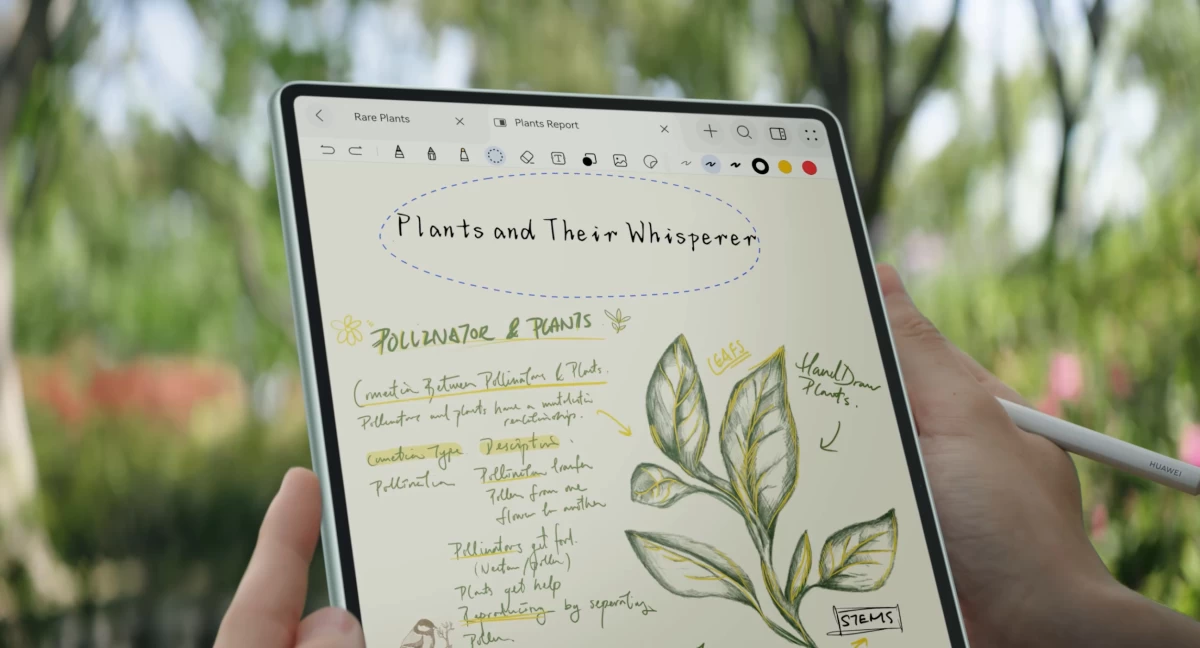 Rare Plants
Plants Report
Plants and Their Whisperer
POLLINATOR & PLANTS
LEAFS
Hand Draw
Plants.
Connection Between Pollinators & Plants.
Pollinators and plants have a
relationship.
Connection Type
Description
Pollination
Pollination transfer
Pollen from one
flower to another
Pollinators get food.
(Nectar/pollen)
Plants get help
Reproducing by seperating
Pollen.
STEMS
HUAWEI